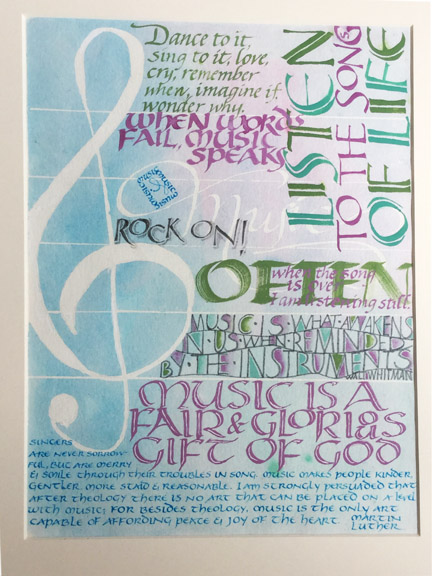 Dance to it,
Sing to it, love,
cry, remember
when, imagine if
wonder why.
WHEN WORDS
FAIL, MUSIC
SPEAKS
LISTEN
TO THE SONG
OF LIFE
Music
ROCK ON!
OFTEN
when the song
is over
I am listening still.
MUSIC·IS·WHAT·AWAKENS
IN·US·WHEN·REMINDED
BY·THE·INSTRUMENTS
WALT WHITMAN
MUSIC IS A
FAIR & GLORIOUS
GIFT OF GOD
SINGERS
ARE NEVER SORROW
FUL, BUT ARE MERRY
& SMILE THROUGH THEIR TROUBLES IN SONG. MUSIC MAKES PEOPLE KINDER,
GENTLER, MORE STAID & REASONABLE. I AM STRONGLY PERSUADED THAT
AFTER THEOLOGY THERE IS NO ART THAT CAN BE PLACED ON A LEVEL
WITH MUSIC; FOR BESIDES THEOLOGY, MUSIC IS THE ONLY ART
CAPABLE OF AFFORDING PEACE & JOY OF THE HEART MARTIN
LUTHER